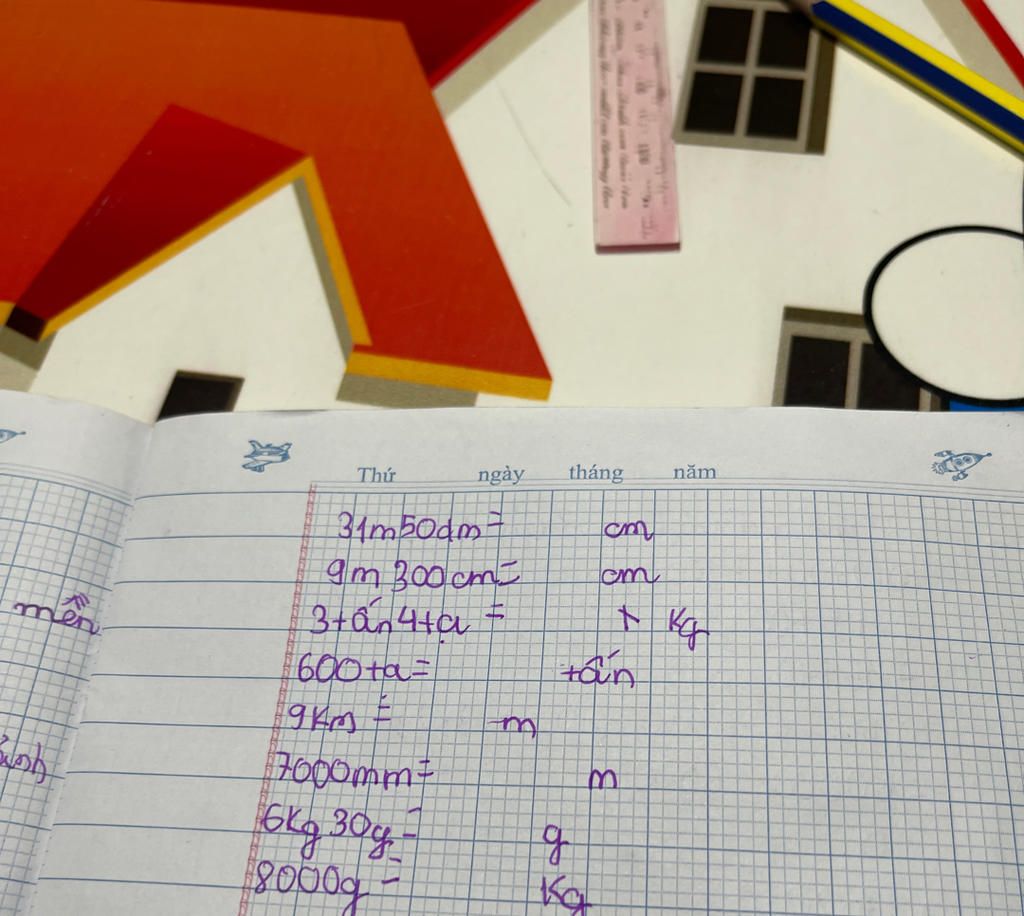 Thứ ngày tháng năm
31m50dm= cm
9m 300cm= cm
3tấn4tạ = + Kg
600tạ= tấn
9Km = m
7000mm= m
6Kg 30g= g
8000g = Kg
mền